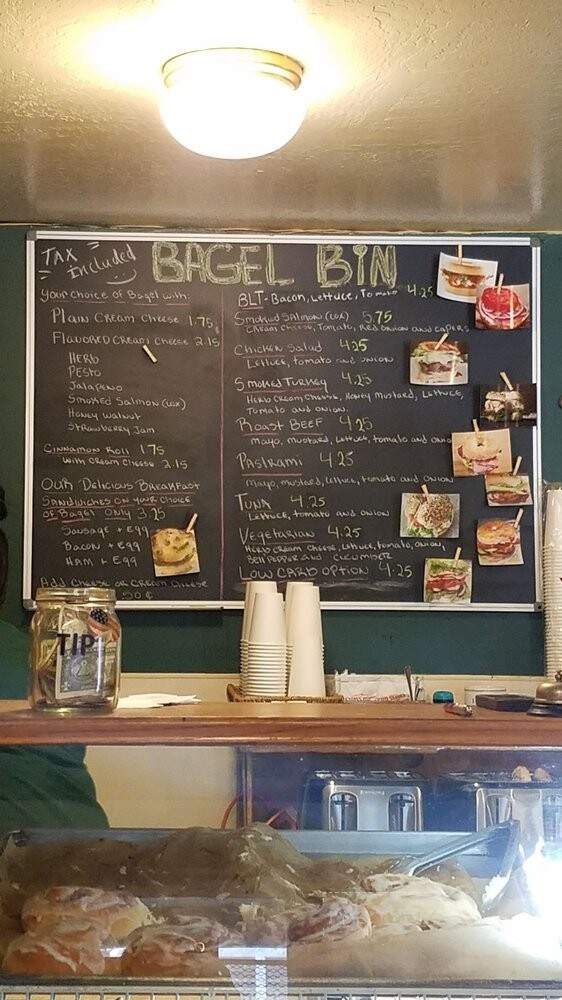 TAX
Included
BAGEL BIN
Your choice of Bagel with:
Plain Cream Cheese 1.75
Flavored Cream Cheese 2.15
Herb
Pesto
Jalapeno
Smoked Salmon (Lox)
Honey Walnut
Strawberry Jam
Cinnamon Roll 1.75
with Cream Cheese 2.15
Our Delicious Breakfast
Sandwiches on your choice
of Bagel Only 3.25
Sausage + Egg
Bacon + Egg
Ham + Egg
Add Cheese or Cream Cheese
.50 ¢
BLT - Bacon, Lettuce, Tomato 4.25
Smoked Salmon (Lox) 5.75
Cream Cheese, Tomato, Red Onion and Capers
Chicken Salad 4.25
Lettuce, tomato and onion
Smoked Turkey 4.25
Herb Cream Cheese, Honey Mustard, Lettuce,
Tomato and onion.
Roast Beef 4.25
Mayo, mustard, Lettuce, tomato and onion
Pastrami 4.25
Mayo, mustard, Lettuce, tomato and onion
Tuna 4.25
Lettuce, tomato and onion
Vegetarian 4.25
Herb cream cheese, Lettuce, tomato, onion,
Bell pepper and cucumber
Low Carb Option 4.25
TIP